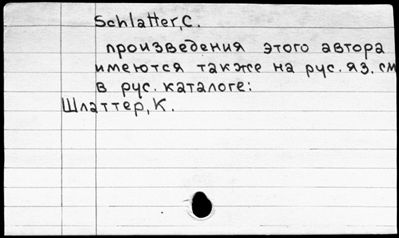 Schlatter, C.
произведения этого автора
имеются также на рус. яз. см
в рус. каталоге:
Шлаттер, К.